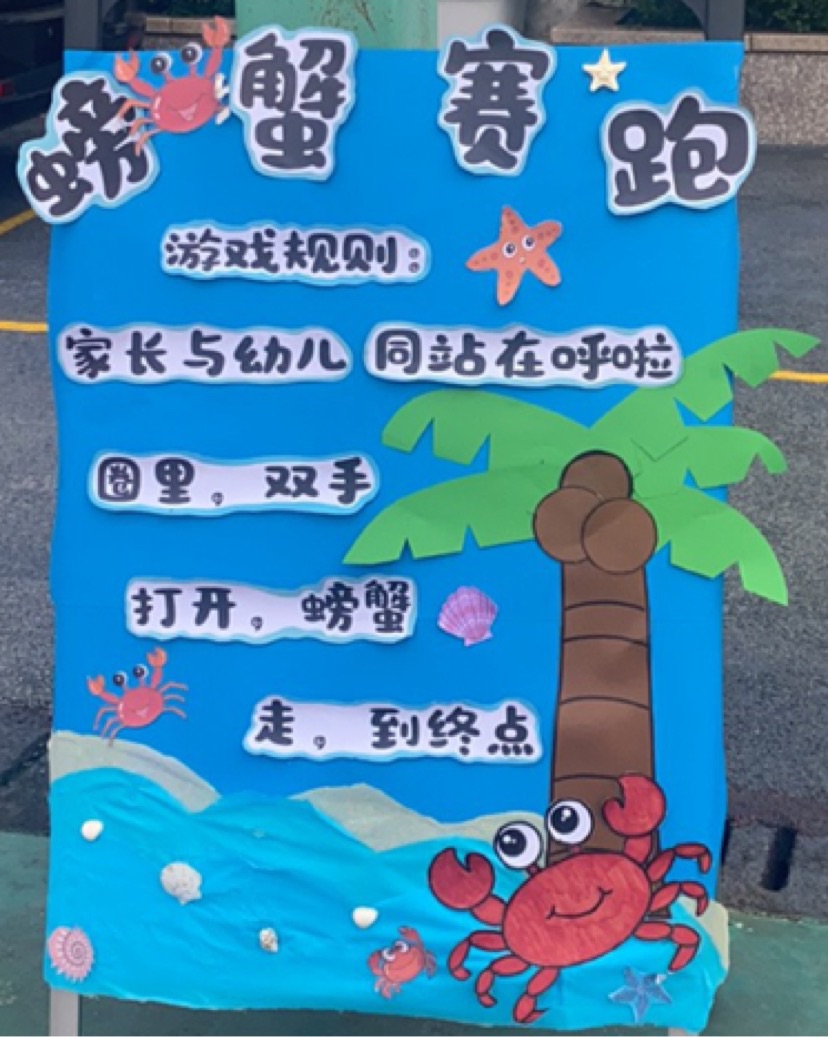 螃蟹赛跑
游戏规则：
家长与幼儿 同站在呼啦
圈里，双手
打开，螃蟹
走，到终点